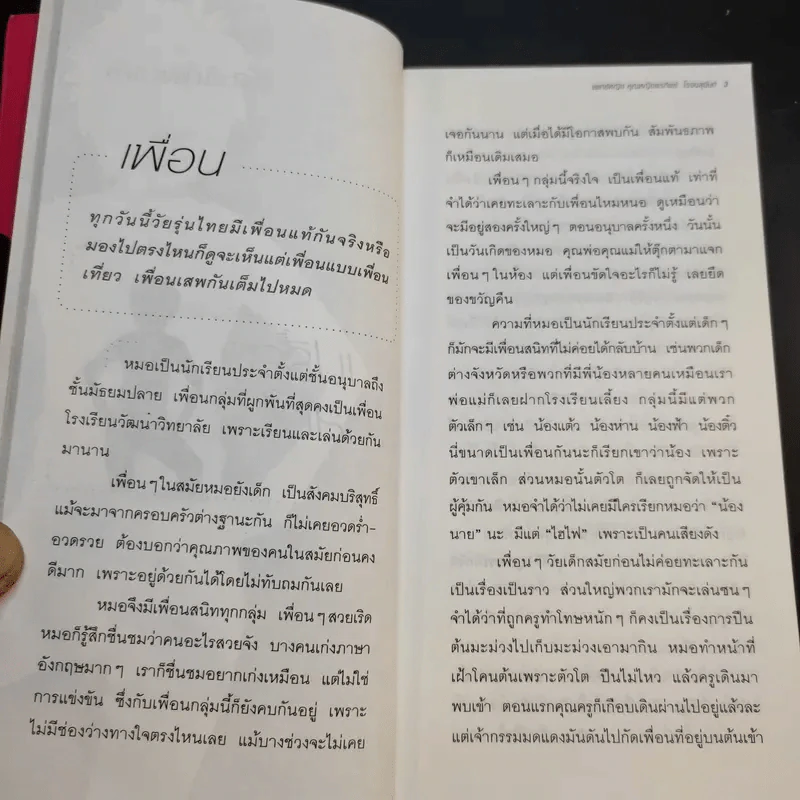 เพื่อน
ทุกวันนี้วัยรุ่นไทยมีเพื่อนแท้กันจริงหรือ
มองไปตรงไหนก็ดูจะเห็นแต่เพื่อนแบบเพื่อน
เที่ยว เพื่อนเสพกันเต็มไปหมด
หมอเป็นนักเรียนประจำตั้งแต่ชั้นอนุบาลถึง
ชั้นมัธยมปลาย เพื่อนกลุ่มที่ผูกพันที่สุดคงเป็นเพื่อน
โรงเรียนวัฒนาวิทยาลัย เพราะเรียนและเล่นด้วยกัน
มานาน
เพื่อนๆ ในสมัยหมอยังเด็ก เป็นสังคมบริสุทธิ์
แม้จะมาจากครอบครัวต่างฐานะกัน ก็ไม่เคยอวดร่ำ-
อวดรวย ต้องบอกว่าคุณภาพของคนในสมัยก่อนคง
ดีมาก เพราะอยู่ด้วยกันได้โดยไม่ทับถมกันเลย
หมอจึงมีเพื่อนสนิททุกกลุ่ม เพื่อนๆ สวยเริด
หมอก็รู้สึกชื่นชมว่าคนอะไรสวยจัง บางคนเก่งภาษา
อังกฤษมากๆ เราก็ชื่นชมอยากเก่งเหมือน แต่ไม่ใช่
การแข่งขัน ซึ่งกับเพื่อนกลุ่มนี้ก็ยังคบกันอยู่ เพราะ
ไม่มีช่องว่างทางใจตรงไหนเลย แม้บางช่วงจะไม่เคย
แพทย์หญิง คุณหญิงพรทิพย์ โรจนสุนันท์ 3
เจอกันนาน แต่เมื่อได้มีโอกาสพบกัน สัมพันธภาพ
ก็เหมือนเดิมเสมอ
เพื่อนๆ กลุ่มนี้จริงใจ เป็นเพื่อนแท้ เท่าที่
จำได้ว่าเคยทะเลาะกับเพื่อนไหมหนอ ดูเหมือนว่า
จะมีอยู่สองครั้งใหญ่ๆ ตอนอนุบาลครั้งหนึ่ง วันนั้น
เป็นวันเกิดของหมอ คุณพ่อคุณแม่ให้ตุ๊กตามาแจก
เพื่อนๆ ในห้อง แต่เพื่อนขัดใจอะไรก็ไม่รู้ เลยยึด
ของขวัญคืน
ความที่หมอเป็นนักเรียนประจำตั้งแต่เด็กๆ
ก็มักจะมีเพื่อนสนิทที่ไม่ค่อยได้กลับบ้าน เช่นพวกเด็ก
ต่างจังหวัดหรือพวกที่มีพี่น้องหลายคนเหมือนเรา
พ่อแม่ก็เลยฝากโรงเรียนเลี้ยง กลุ่มนี้มีแต่พวก
ตัวเล็กๆ เช่น น้องแต้ว น้องห่าน น้องฟ้า น้องติ๋ว
นี่ขนาดเป็นเพื่อนกันนะก็เรียกเขาว่าน้อง เพราะ
ตัวเขาเล็ก ส่วนหมอนั้นตัวโต ก็เลยถูกจัดให้เป็น
ผู้คุ้มกัน หมอจำได้ว่าไม่เคยมีใครเรียกหมอว่า “น้อง
นาย” นะ มีแต่ “ไฮไฟ” เพราะเป็นคนเสียงดัง
เพื่อนๆ วัยเด็กสมัยก่อนไม่ค่อยทะเลาะกัน
เป็นเรื่องเป็นราว ส่วนใหญ่พวกเรามักจะเล่นซนๆ
จำได้ว่าที่ถูกครูทำโทษหนักๆ ก็คงเป็นเรื่องการปีน
ต้นมะม่วงไปเก็บมะม่วงเอามากิน หมอทำหน้าที่
เฝ้าโคนต้นเพราะตัวโต ปีนไม่ไหว แล้วครูเดินมา
พบเข้า ตอนแรกคุณครูก็เกือบเดินผ่านไปอยู่แล้วละ
แต่เจ้ากรรมมดแดงมันดันไปกัดเพื่อนที่อยู่บนต้นเข้า